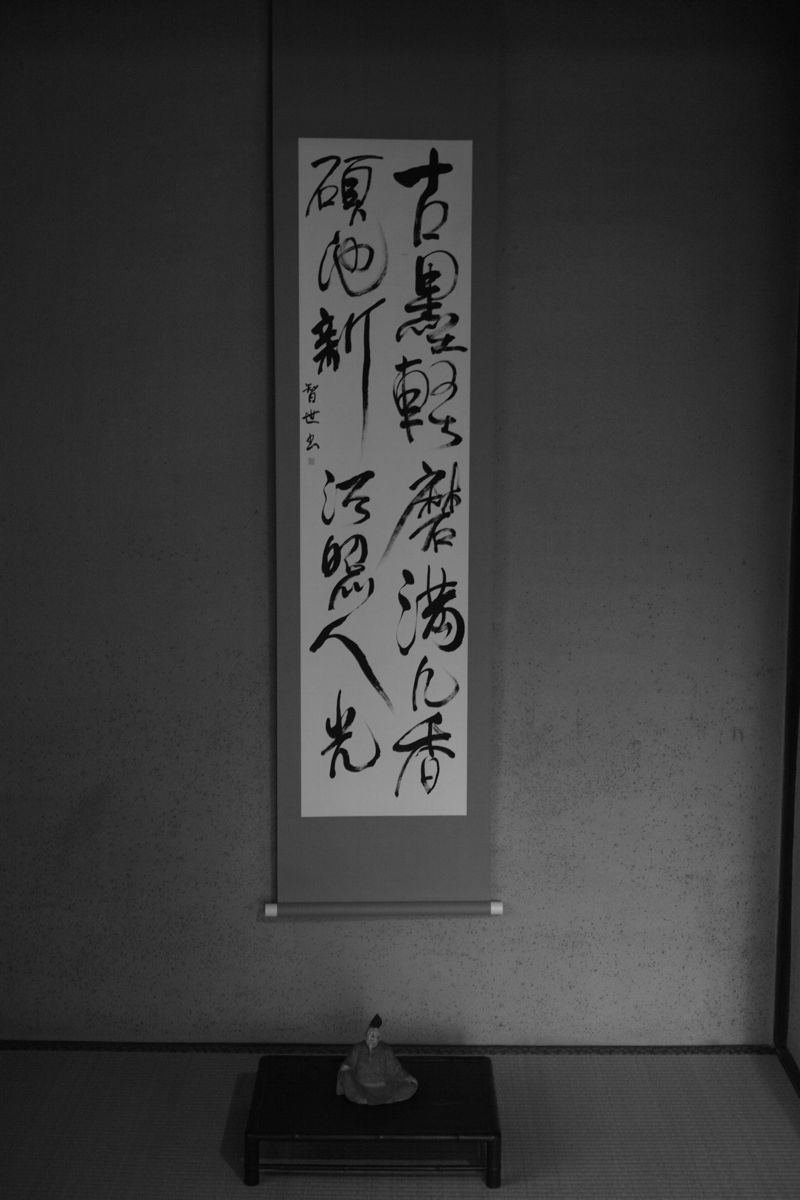 古墨軽磨満几香
硯池新浴照人光
智世書